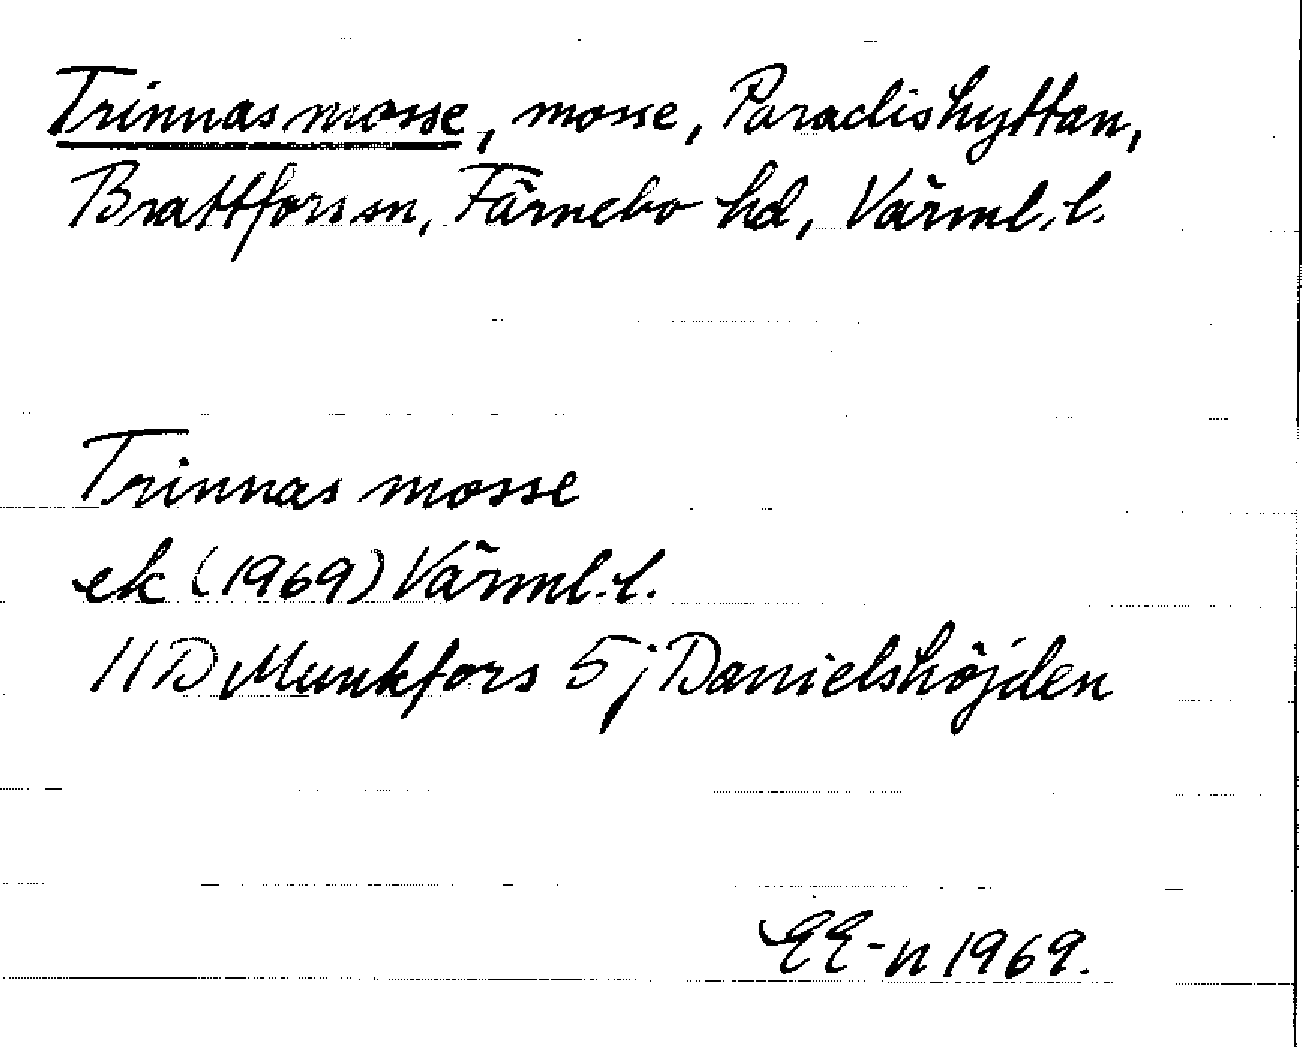 Trinnasmosse, mosse, Paradishyttan,
Brattfors sn, Färnebo hd, Värml. l.
Trinnas mosse
ek (1969) Värml. l.
11D Munkfors 5j Danielshöjden
EE-n 1969.